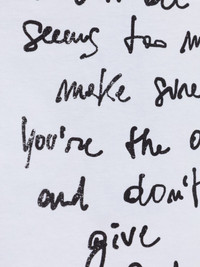 seems too
make sure
you're the
and don't
give